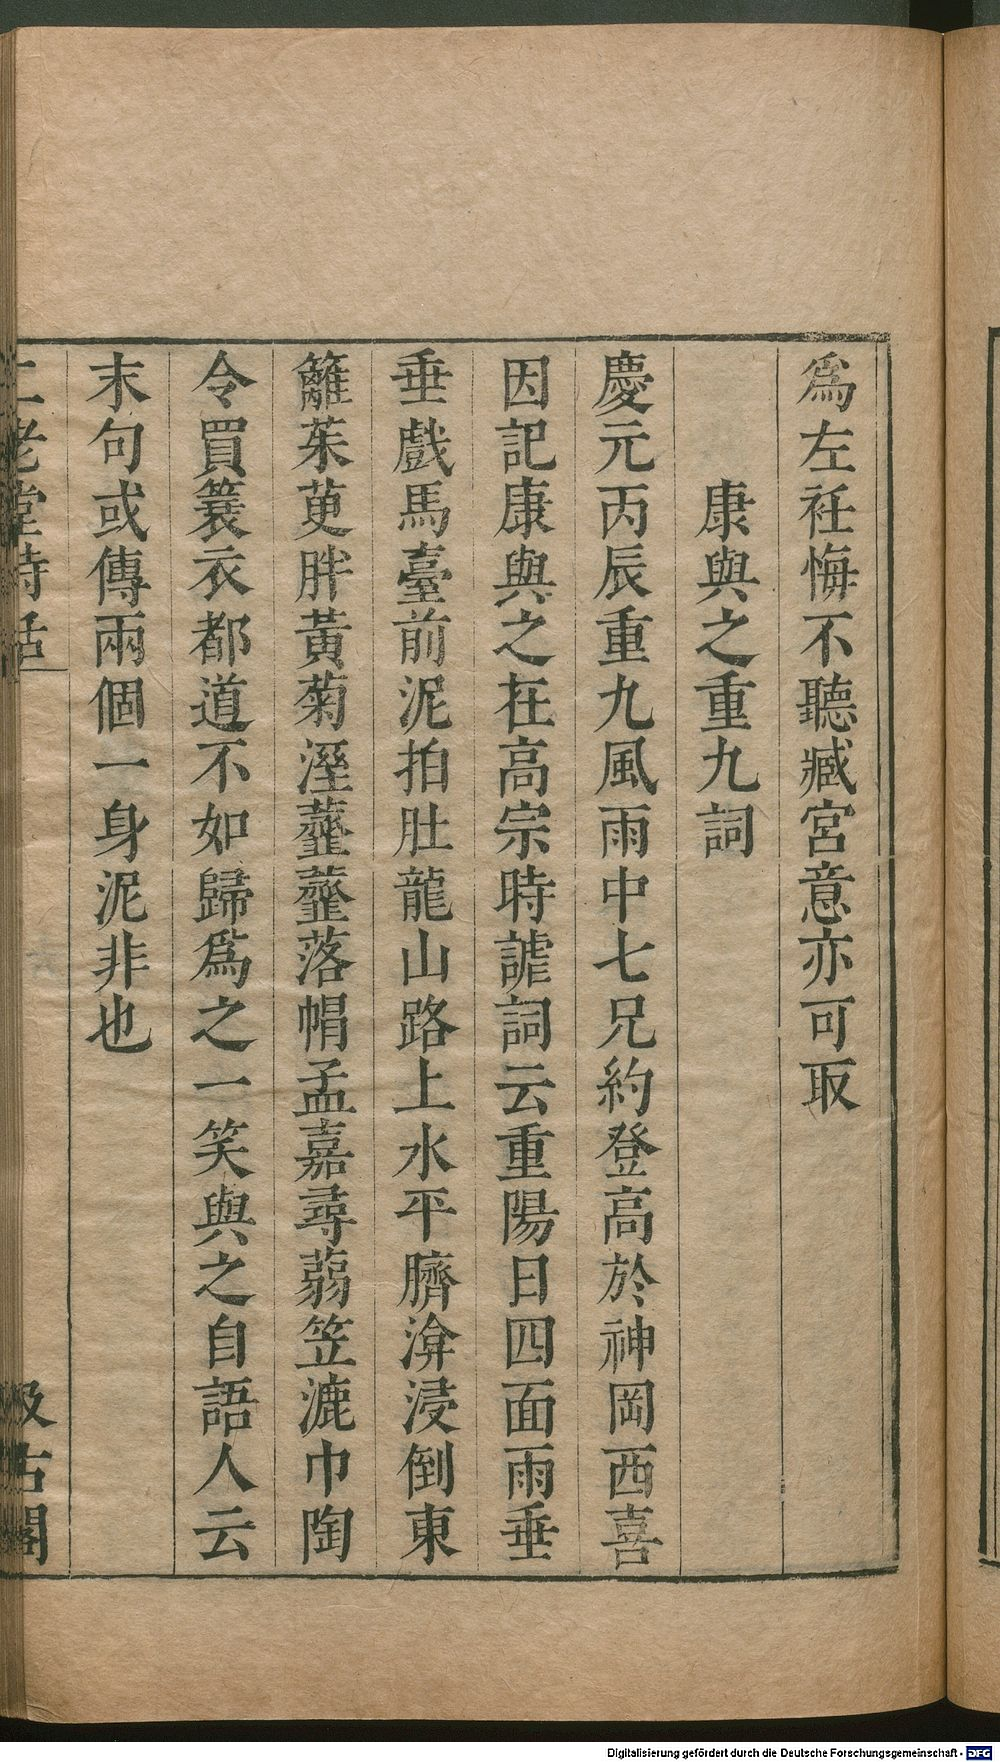 爲左袵悔不聽臧宮意亦可取
康與之重九詞
慶元丙辰重九風雨中七兄約登高於神岡西喜
因記康與之在高宗時謔詞云重陽日四面雨垂
垂戲馬臺前泥拍肚龍山路上水平臍渰浸倒東
籬茱萸胖黃菊溼虀虀落帽孟嘉尋蒻笠漉巾陶
令買簑衣都道不如歸爲之一笑與之自語人云
末句或傳兩個一身泥非也
二老堂詩話
汲古閣
Digitalisierung gefördert durch die Deutsche Forschungsgemeinschaft - DFG